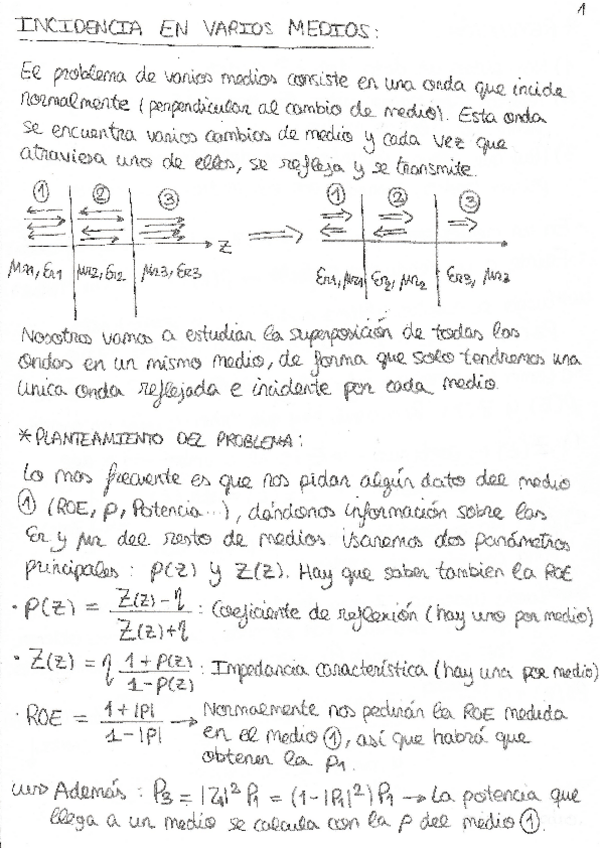 1
INCIDENCIA EN VARIOS MEDIOS:
El problema de varios medios consiste en una onda que incide
normalmente (perpendicular al cambio de medio). Esta onda
se encuentra varios cambios de medio y cada vez que
atraviesa uno de ellos, se refleja y se transmite.
① ② ③ ① ② ③
z
μr1, εr1 μr2, εr2 μr3, εr3 εr1, μr1 εr2, μr2 εr3, μr3
Nosotros vamos a estudiar la superposición de todas las
ondas en un mismo medio, de forma que solo tendremos una
unica onda reflejada e incidente por cada medio.
*PLANTEAMIENTO DEL PROBLEMA:
Lo mas frecuente es que nos pidan algún dato del medio
① (ROE, ρ, Potencia...), dándonos información sobre las
εr y μr del resto de medios. Usaremos dos parámetros
principales: ρ(z) y Z(z). Hay que saber tambien la ROE
· ρ(z) = Z(z) - η / Z(z) + η : Coeficiente de reflexión (hay uno por medio)
· Z(z) = η 1 + ρ(z) / 1 - ρ(z) : Impedancia característica (hay una por medio)
· ROE = 1 + |ρ| / 1 - |ρ| → Normalmente nos pedirán la ROE medida
en el medio ①, así que habrá que
obtener la ρ1.
Además: P3 = P1 = (1 - |ρ1|²) P1 → La potencia que
llega a un medio se calcula con la ρ del medio ①.